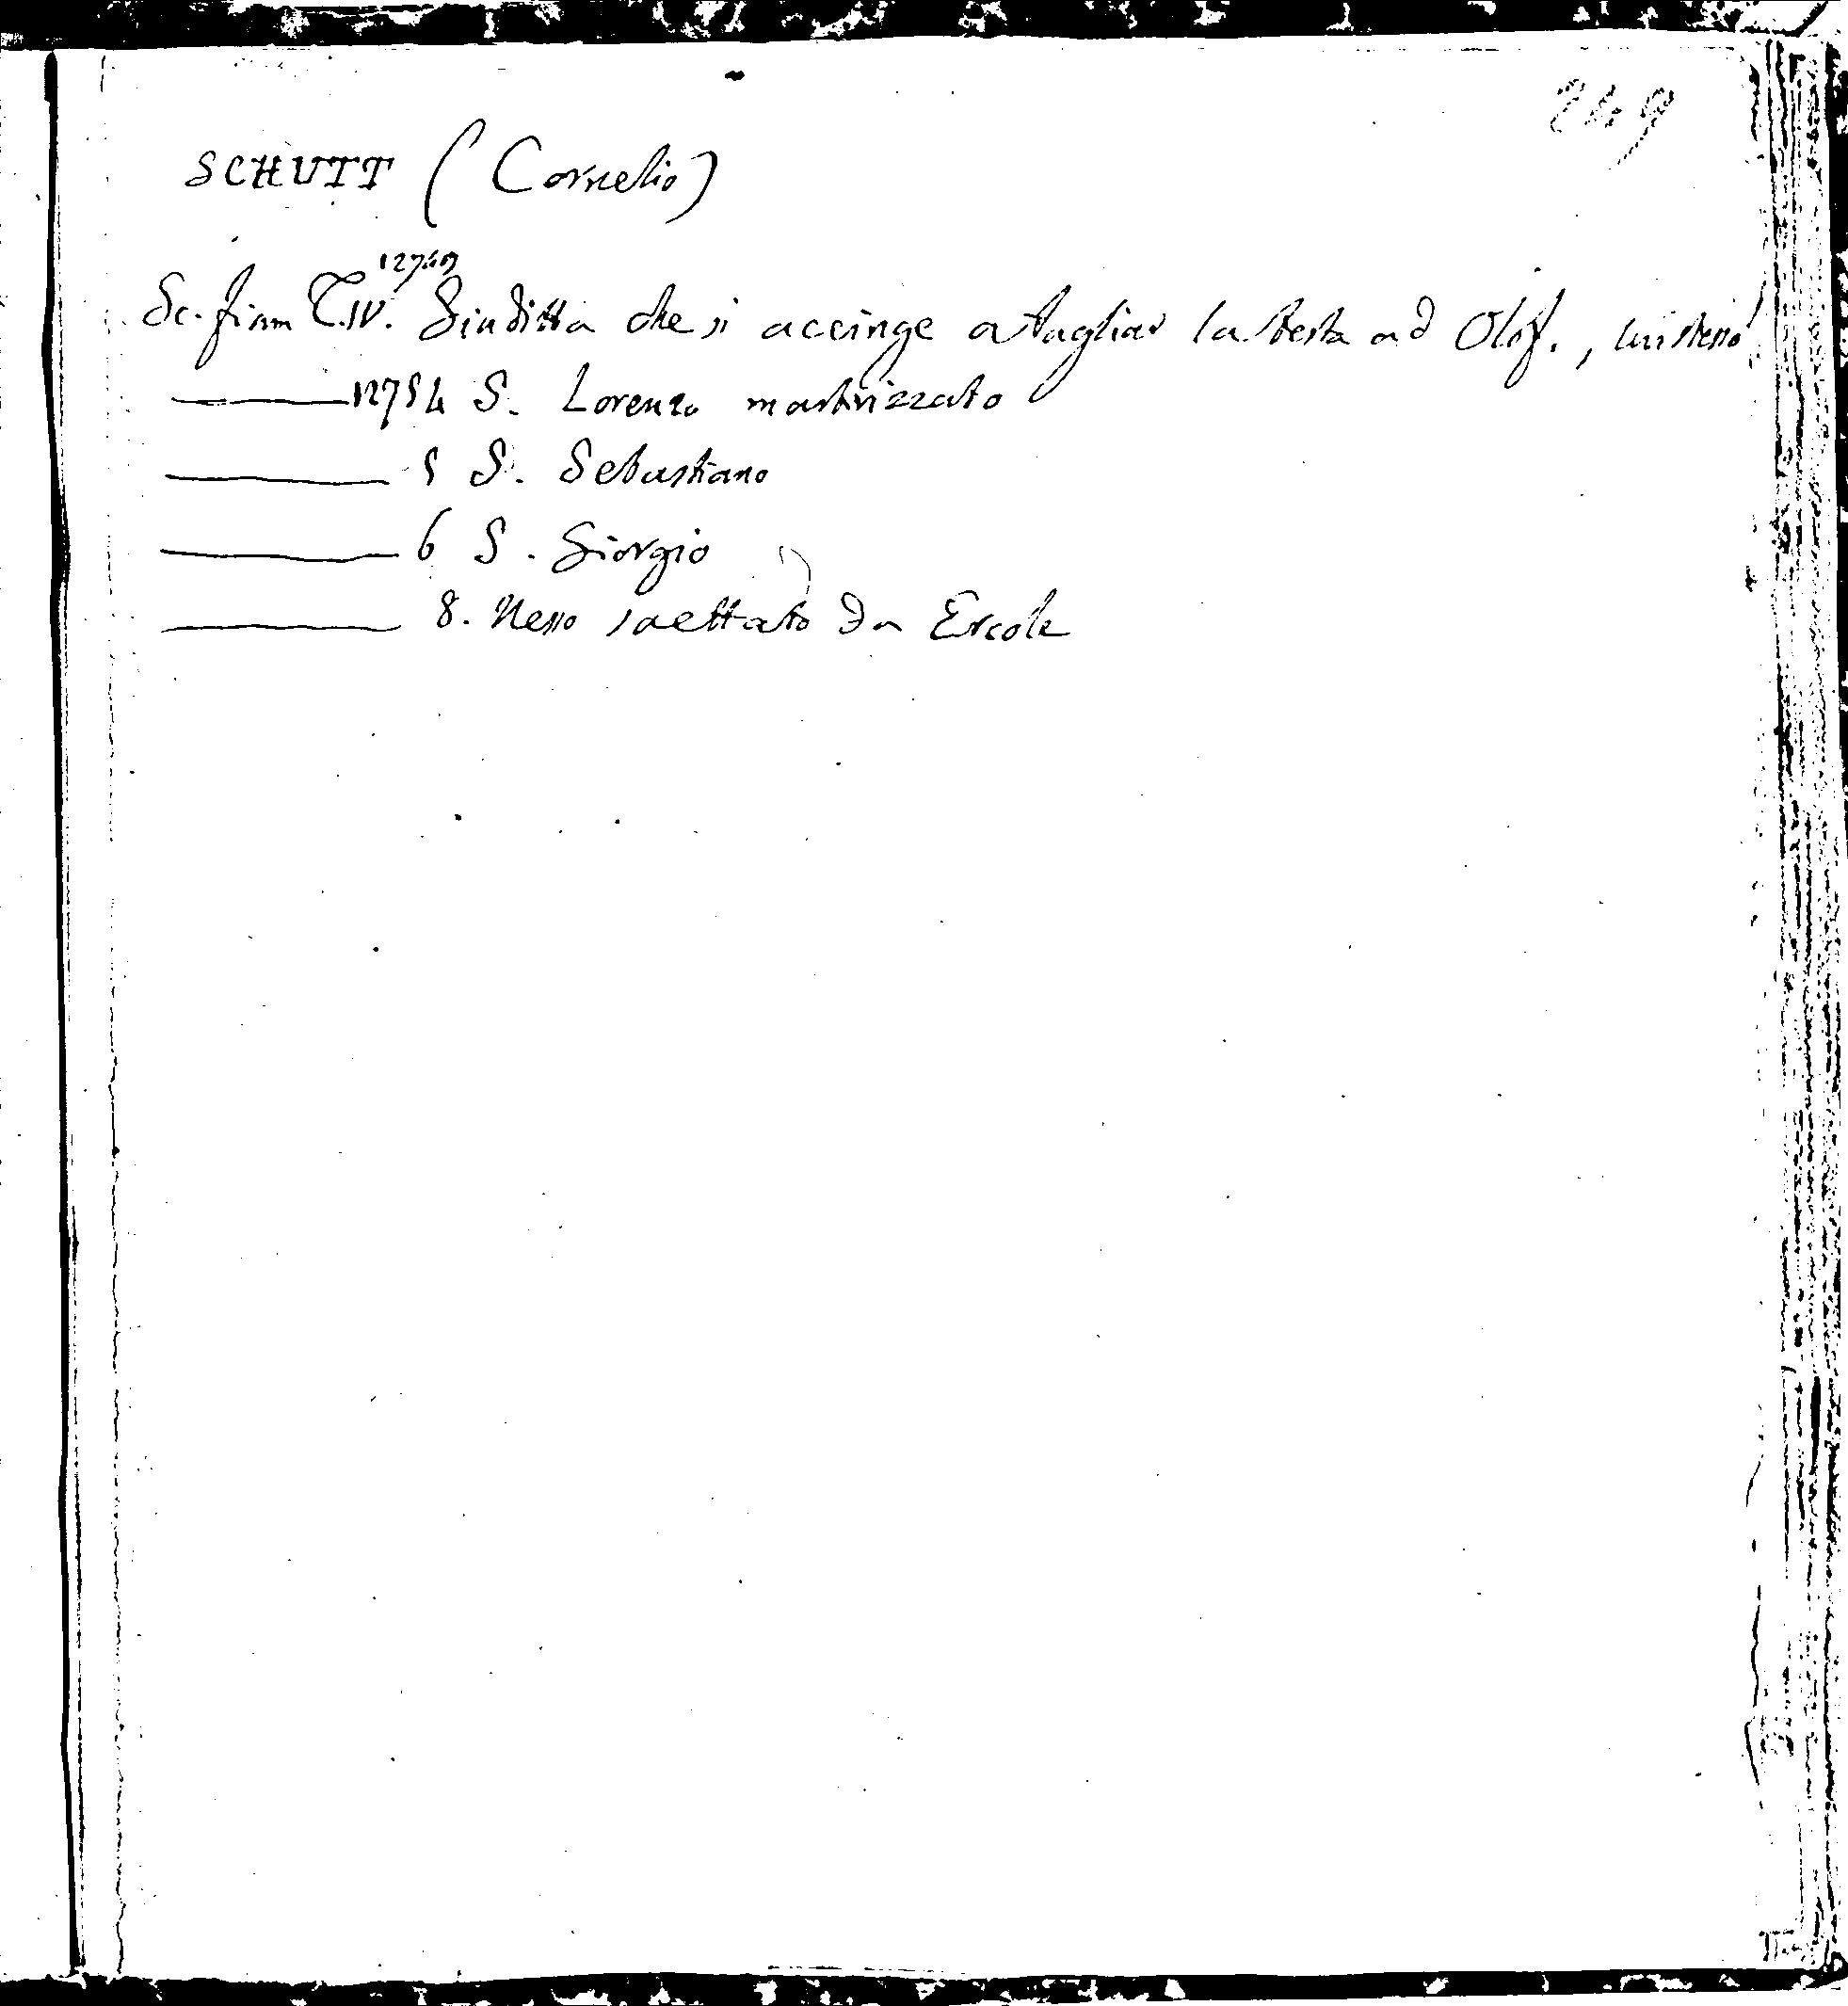 249
SCHUTT (Cornelio)
Sc. fiam T.IV. Giuditta che si accinge a tagliar la testa ad Olof., lui stesso
12754 S. Lorenzo martirizzato
5 S. Sebastiano
6 S. Giorgio
8. Nesso saettato da Ercole